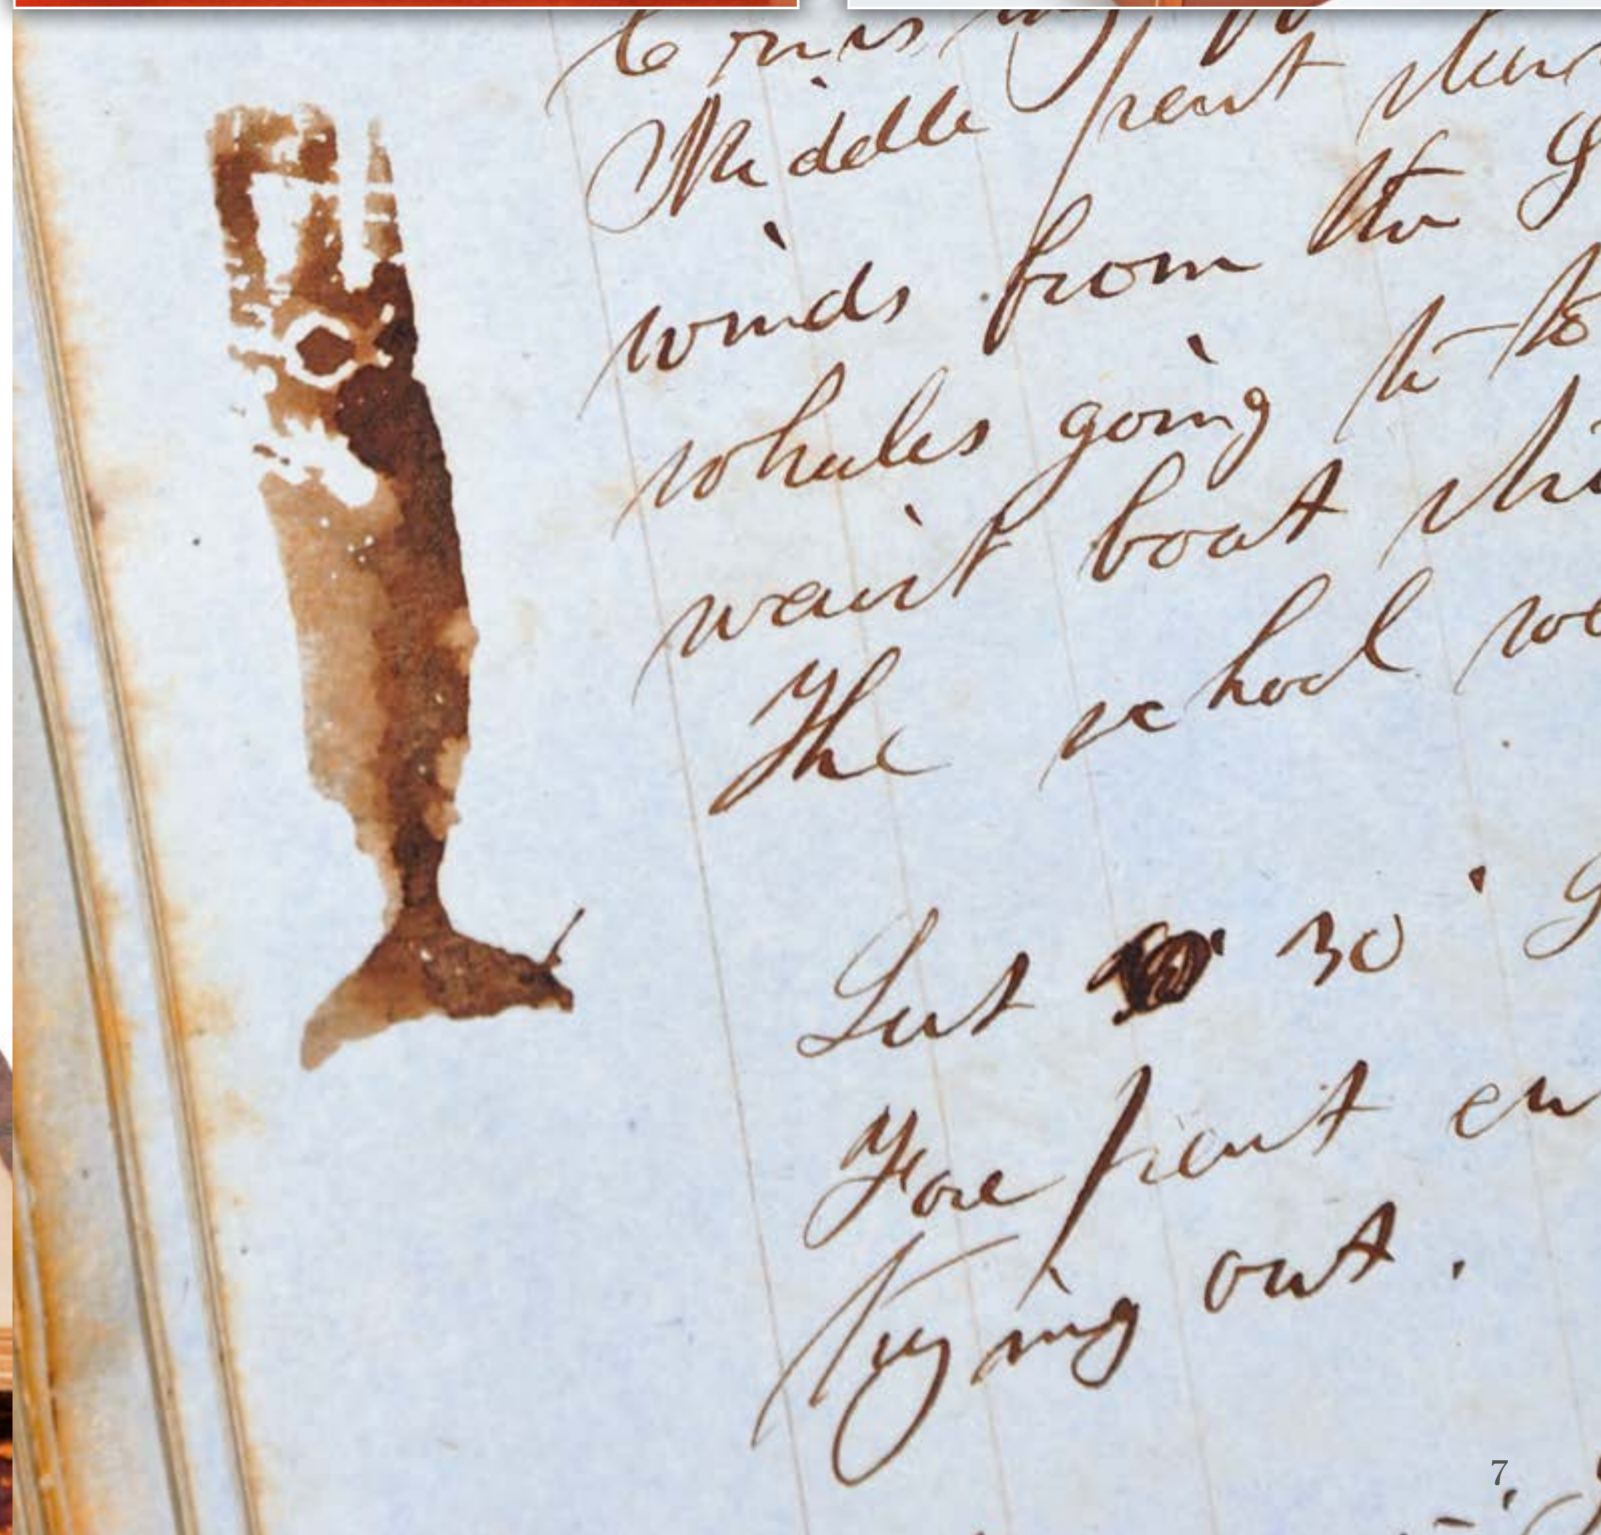 Middle part
winds from the
whales going to
waist boat
The school
Lat 30
Fore part en
trying out.
7